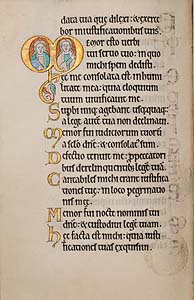 data tua que dilexi: & exerce
bor in iustificationibus tuis.
Memor esto verbi
tui servo tuo: in quo
michi spem dedisti.
Hec me consolata est in humi
litate mea: quia eloquium
tuum vivificavit me.
Superbi inique agebant usquequaq;
a lege autē tua non declinavi.
Memor fui iudiciorum tuorum
a seclo dn̄e: & consolat' sum.
Defectio tenuit me: p peccatori
bus derelinquentib; legē tuā.
Cantabiles michi erant iustifica
tiones tue: in loco peregrinatio
nis mee.
Memor fui nocte nominis tui
dn̄e: & custodivi legē tuam.
Hec facta est michi: quia iusti
ficationes tuas exquisivi.